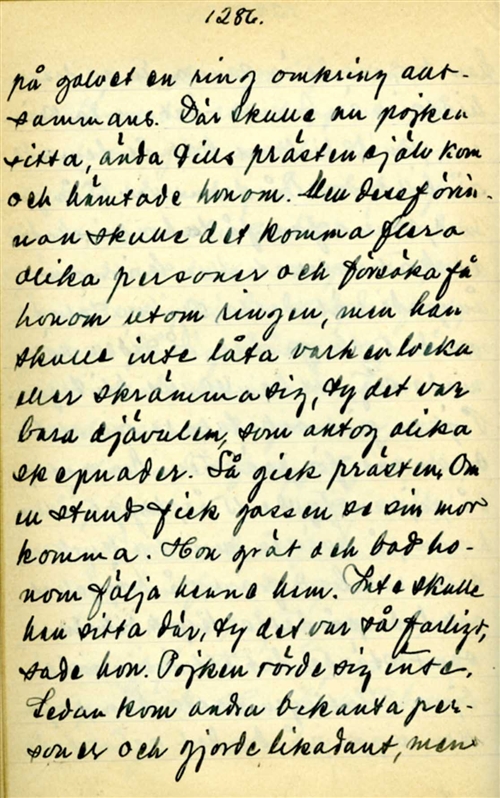 1286.
på golvet en ring omkring allt-
sammans. Där skulle nu pojken
sitta, ända tills prästen själv kom
och hämtade honom. Men dessförin-
nan skulle det komma flera
olika personer och försöka få
honom utom ringen, men han
skulle inte låta varken locka
eller skrämma sig, ty det var
bara djävulen, som antog olika
skepnader. Så gick prästen. Om
en stund fick gossen se sin mor
komma. Hon grät och bad ho-
nom följa henne hem. Inte skulle
han sitta där, ty det var så farligt,
sade hon. Pojken rörde sig inte.
Sedan kom andra bekanta per-
soner och gjorde likadant, men